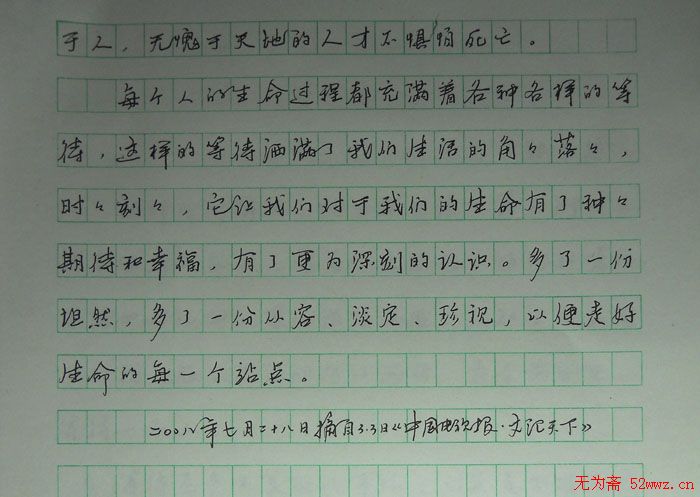 于人，无愧于天地的人才不惧怕死亡。
每个人的生命过程都充满着各种各样的等
待，这样的等待洒满了我们生活的角々落々，
时々刻々，它让我们对于我们的生命有了种々
期待和幸福，有了更为深刻的认识。多了一份
坦然，多了一份从容、淡定、珍视，以便走好
生命的每一个站点。
年七月二十八日摘自3.3日《中国电视报·文记天下》
无为斋 52wwz.cn